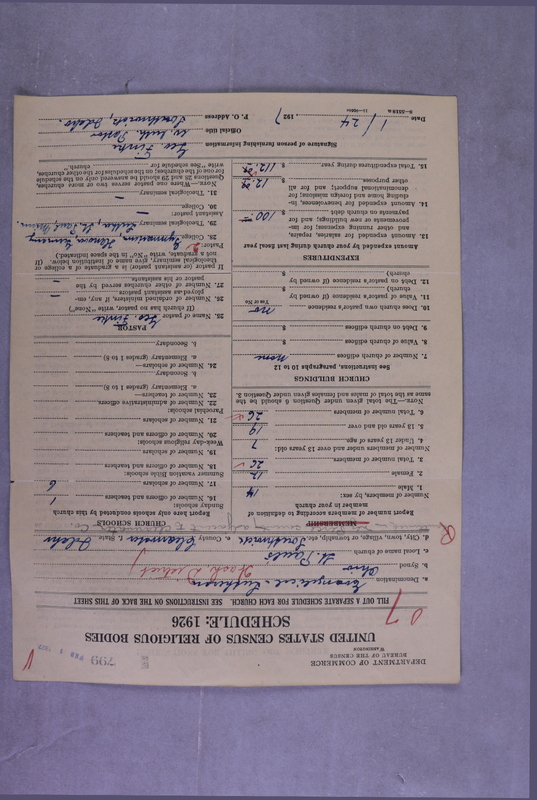 DEPARTMENT OF COMMERCE
BUREAU OF THE CENSUS
WASHINGTON
799
UNITED STATES CENSUS OF RELIGIOUS BODIES
SCHEDULE: 1926
FILL OUT A SEPARATE SCHEDULE FOR EACH CHURCH. SEE INSTRUCTIONS ON THE BACK OF THIS SHEET
a. Denomination Evangelical Lutheran
b. Synod Ohio
c. Local name of church St. Paul's
d. City, town, village, or township, etc. Southwick e. County Clearwater f. State Idaho
MEMBERSHIP
Report number of members according to definition of member in your church
Number of members, by sex:
1. Male 14
2. Female 12
3. Total number of members 26
Number of members under and over 13 years old:
4. Under 13 years of age 7
5. 13 years old and over 19
6. Total number of members 26
NOTE.—The total given under Question 6 should be the same as the total of males and females given under Question 3.
CHURCH BUILDINGS
See instructions, paragraphs 10 to 12
7. Number of church edifices none
8. Value of church edifices $
9. Debt on church edifices $
10. Does church own pastor's residence no
Yes or No
11. Value of pastor's residence (if owned by church) $
12. Debt on pastor's residence (if owned by church) $
EXPENDITURES
Amount expended by your church during last fiscal year
13. Amount expended for salaries, repairs, and other running expenses; for improvements or new building; and for payments on church debt $ 100
14. Amount expended for benevolences, including home and foreign missions; for denominational support; and for all other purposes $ 12
15. Total expenditures during year $ 112
CHURCH SCHOOLS
Report here only schools conducted by this church
Sunday schools:
16. Number of officers and teachers 1
17. Number of scholars 6
Summer vacation Bible schools:
18. Number of officers and teachers
19. Number of scholars
Week-day religious schools:
20. Number of officers and teachers
21. Number of scholars
Parochial schools:
22. Number of administrative officers
23. Number of teachers—
a. Elementary (grades 1 to 8)
b. Secondary
24. Number of scholars—
a. Elementary (grades 1 to 8)
b. Secondary
PASTOR
25. Name of pastor Geo. Finke
(If church has no pastor, write "None")
26. Number of ordained ministers, if any, employed as assistant pastors —
27. Number of other churches served by the pastor or his assistants —
If pastor (or assistant pastor) is a graduate of a college or theological seminary, give name of institution below. (If not a graduate, write "No" in the space indicated.)
Pastor:
28. College Gymnasium, Germany
29. Theological seminary Luther, St. Paul, Minn.
Assistant pastor:
30. College —
31. Theological seminary —
NOTE.—When one pastor serves two or more churches, Questions 28 and 29 should be answered only on the schedule for one of the churches; on the schedule for the other churches, write "See schedule for church."
Signature of person furnishing information Geo. Finke
Official title Ev. Luth. Pastor
P. O. Address Southwick, Idaho.
Date 1/24, 1927